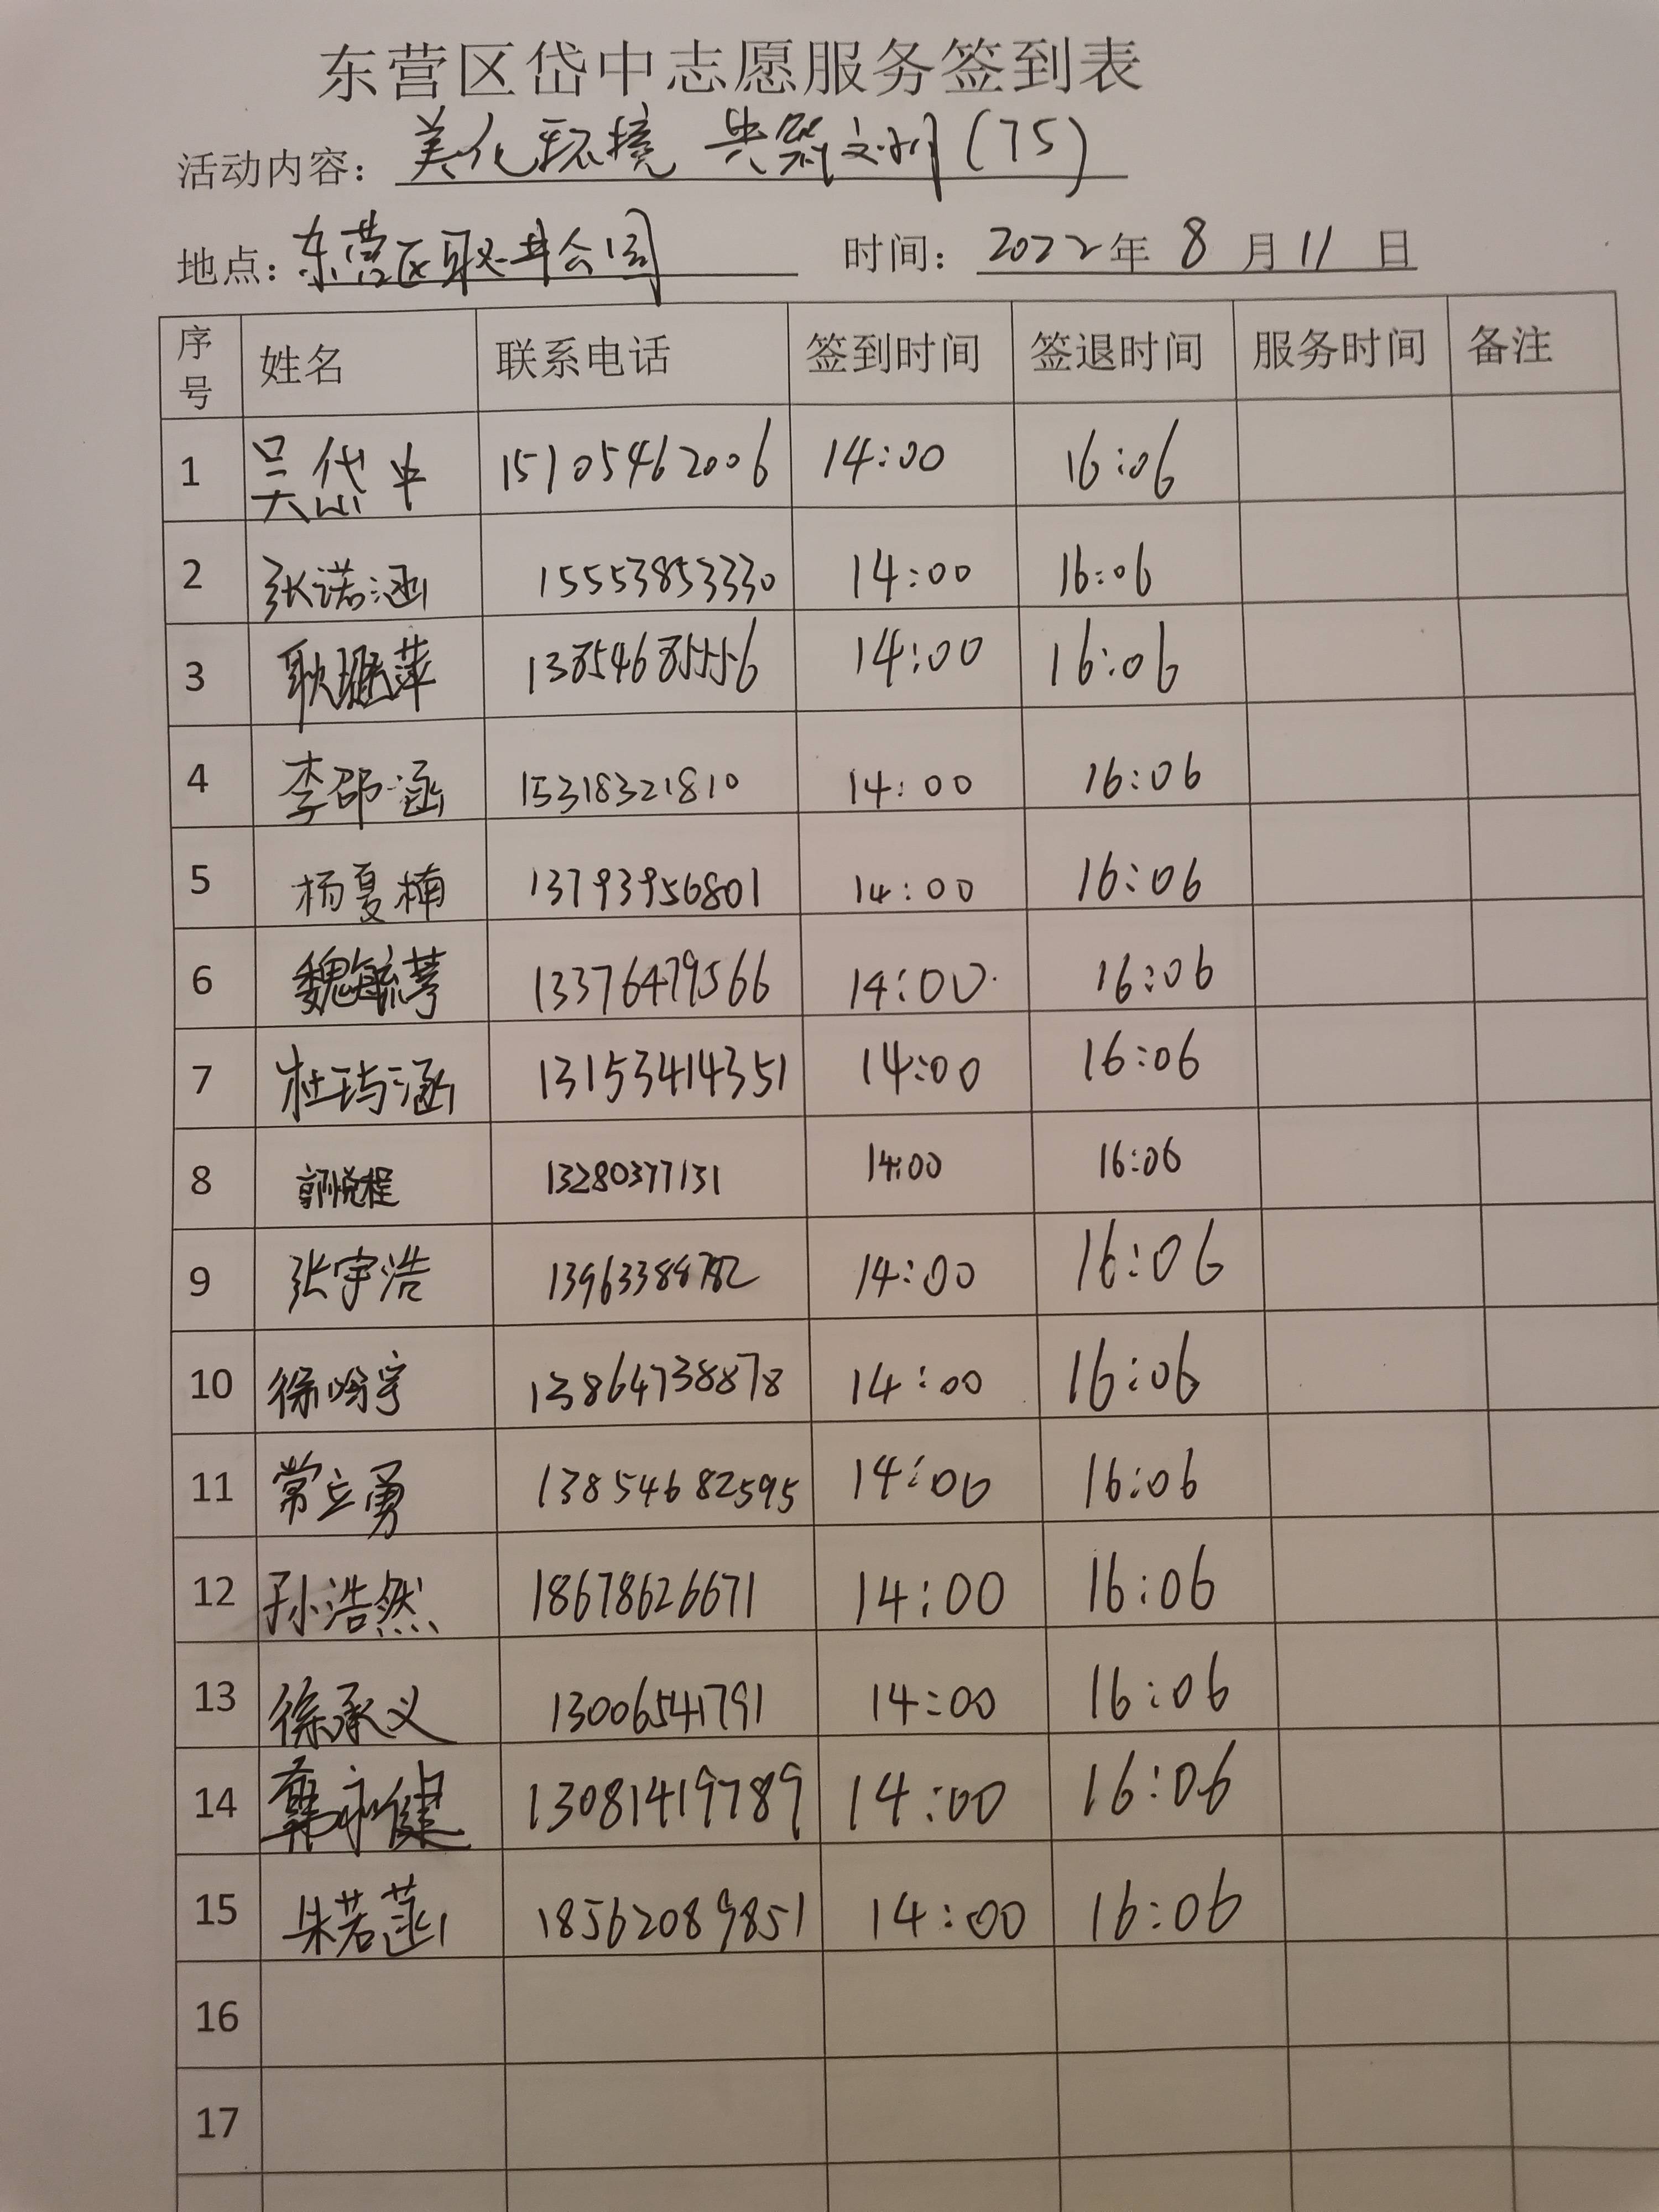 东营区岱中志愿服务签到表
活动内容：美化环境 共筑文明(75)
地点：东营区耿井公园 时间：2022年8月11日
序号 姓名 联系电话 签到时间 签退时间 服务时间 备注
1 吴岱中 15105462006 14:00 16:06
2 张诺涵 15553853330 14:00 16:06
3 耿萍 13854685556 14:00 16:06
4 李邵涵 15318321810 14:00 16:06
5 杨夏楠 13793956801 14:00 16:06
6 魏毓 13376479566 14:00 16:06
7 杜玙涵 13153414351 14:00 16:06
8 郭悦程 13280377131 14:00 16:06
9 张宇浩 14:00 16:06
10 徐晗宇 13864738878 14:00 16:06
11 常立勇 13854682595 14:00 16:06
12 孙浩然 18678626671 14:00 16:06
13 徐承义 13006541791 14:00 16:06
14 永健 13081419789 14:00 16:06
15 朱若菡 18562089851 14:00 16:06
16
17